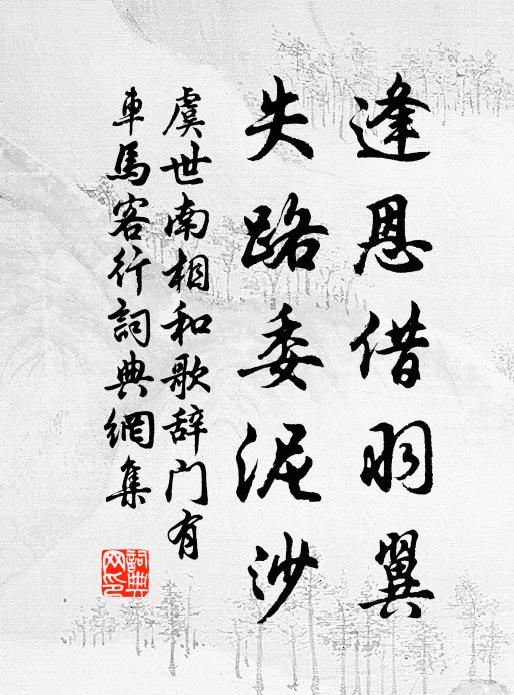 逢恩借羽翼
失路委泥沙
虞世南相和歌辞门有
車馬客行詞典網集
詞典
网印